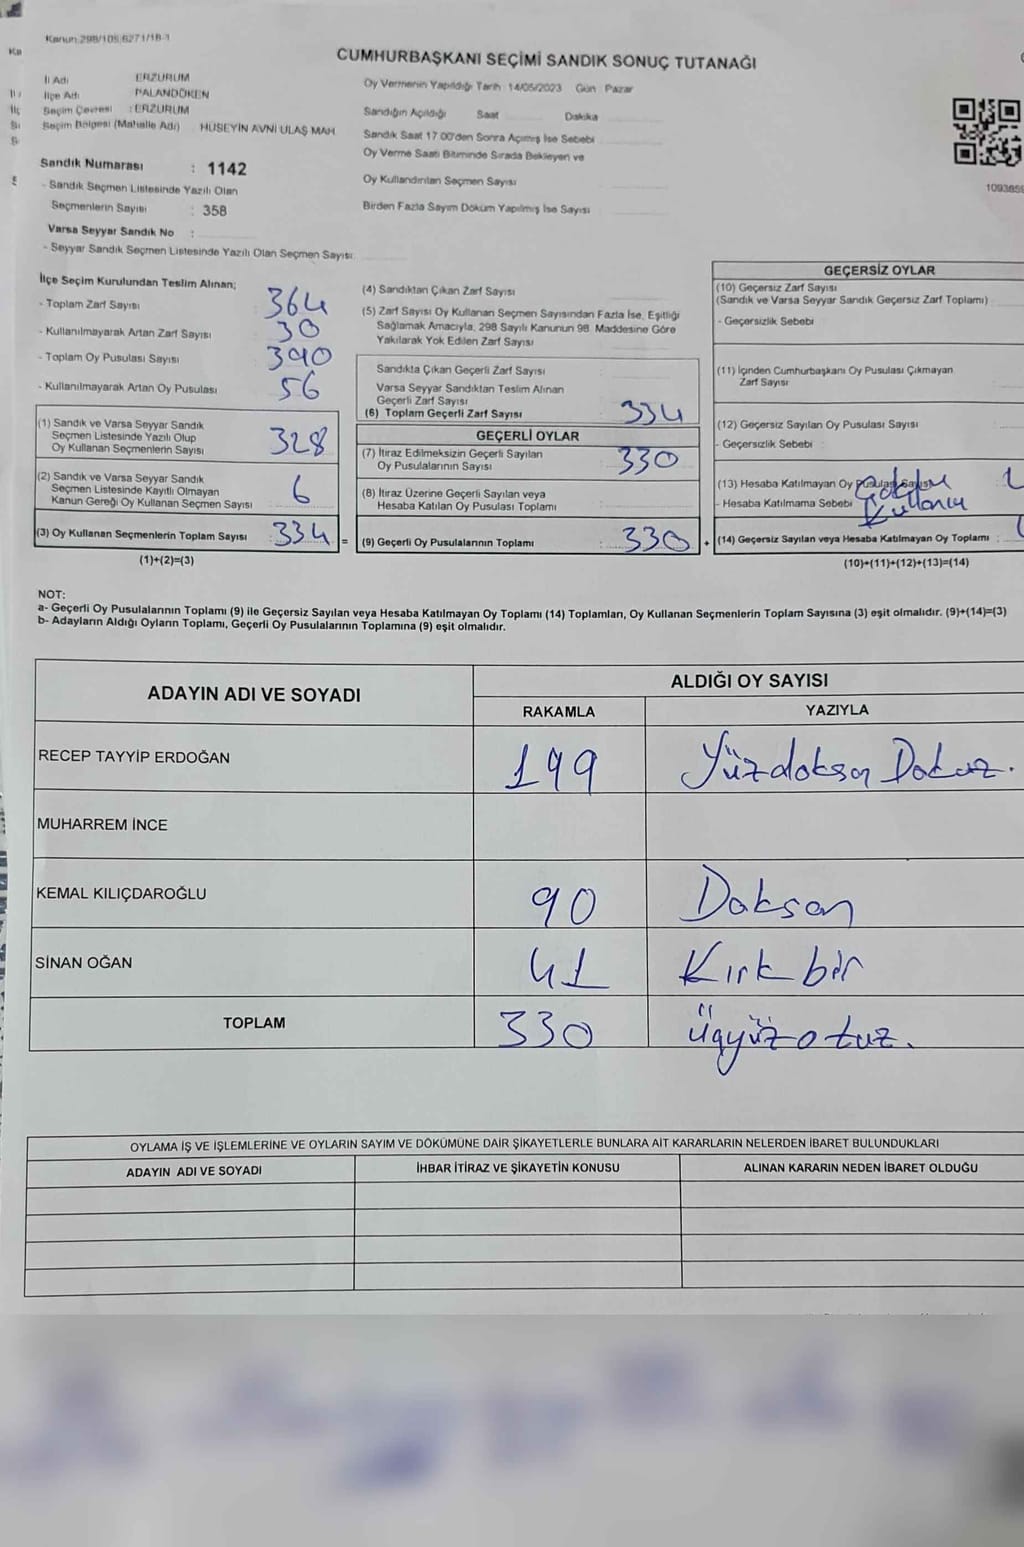 Kanun:298/105;6271/18-1
CUMHURBAŞKANI SEÇİMİ SANDIK SONUÇ TUTANAĞI
İl Adı : ERZURUM
İlçe Adı : PALANDÖKEN
Seçim Çevresi : ERZURUM
Seçim Bölgesi (Mahalle Adı) HÜSEYİN AVNİ ULAŞ MAH.
Sandık Numarası : 1142
- Sandık Seçmen Listesinde Yazılı Olan
Seçmenlerin Sayısı : 358
Varsa Seyyar Sandık No :
- Seyyar Sandık Seçmen Listesinde Yazılı Olan Seçmen Sayısı:
Oy Vermenin Yapıldığı Tarih : 14/05/2023 Gün : Pazar
Sandığın Açıldığı Saat Dakika
Sandık Saat 17.00'den Sonra Açılmış İse Sebebi
Oy Verme Saati Bitiminde Sırada Bekleyen ve
Oy Kullandırılan Seçmen Sayısı
Birden Fazla Sayım Döküm Yapılmış İse Sayısı
İlçe Seçim Kurulundan Teslim Alınan;
- Toplam Zarf Sayısı 364
- Kullanılmayarak Artan Zarf Sayısı 30
- Toplam Oy Pusulası Sayısı 390
- Kullanılmayarak Artan Oy Pusulası 56
(1) Sandık ve Varsa Seyyar Sandık
Seçmen Listesinde Yazılı Olup
Oy Kullanan Seçmenlerin Sayısı 328
(2) Sandık ve Varsa Seyyar Sandık
Seçmen Listesinde Kayıtlı Olmayan
Kanun Gereği Oy Kullanan Seçmen Sayısı 6
(3) Oy Kullanan Seçmenlerin Toplam Sayısı : 334 =
(1)+(2)=(3)
(4) Sandıktan Çıkan Zarf Sayısı
(5) Zarf Sayısı Oy Kullanan Seçmen Sayısından Fazla İse, Eşitliği
Sağlamak Amacıyla, 298 Sayılı Kanunun 98. Maddesine Göre
Yakılarak Yok Edilen Zarf Sayısı
Sandıkta Çıkan Geçerli Zarf Sayısı
Varsa Seyyar Sandıktan Teslim Alınan
Geçerli Zarf Sayısı
(6) Toplam Geçerli Zarf Sayısı 334
GEÇERLİ OYLAR
(7) İtiraz Edilmeksizin Geçerli Sayılan
Oy Pusulalarının Sayısı 330
(8) İtiraz Üzerine Geçerli Sayılan veya
Hesaba Katılan Oy Pusulası Toplamı
(9) Geçerli Oy Pusulalarının Toplamı : 330 +
GEÇERSİZ OYLAR
(10) Geçersiz Zarf Sayısı
(Sandık ve Varsa Seyyar Sandık Geçersiz Zarf Toplamı)
- Geçersizlik Sebebi
(11) İçinden Cumhurbaşkanı Oy Pusulası Çıkmayan
Zarf Sayısı
(12) Geçersiz Sayılan Oy Pusulası Sayısı
- Geçersizlik Sebebi :
(13) Hesaba Katılmayan Oy Pusulası Sayısı
- Hesaba Katılmama Sebebi
(14) Geçersiz Sayılan veya Hesaba Katılmayan Oy Toplamı :
(10)+(11)+(12)+(13)=(14)
1093659
NOT:
a- Geçerli Oy Pusulalarının Toplamı (9) ile Geçersiz Sayılan veya Hesaba Katılmayan Oy Toplamı (14) Toplamları, Oy Kullanan Seçmenlerin Toplam Sayısına (3) eşit olmalıdır. (9)+(14)=(3)
b- Adayların Aldığı Oyların Toplamı, Geçerli Oy Pusulalarının Toplamına (9) eşit olmalıdır.
ADAYIN ADI VE SOYADI ALDIĞI OY SAYISI
RAKAMLA YAZIYLA
RECEP TAYYİP ERDOĞAN 199 Yüzdoksan Dokuz.
MUHARREM İNCE
KEMAL KILIÇDAROĞLU 90 Doksan
SİNAN OĞAN 41 Kırk bir
TOPLAM 330 üçyüz otuz.
OYLAMA İŞ VE İŞLEMLERİNE VE OYLARIN SAYIM VE DÖKÜMÜNE DAİR ŞİKAYETLERLE BUNLARA AİT KARARLARIN NELERDEN İBARET BULUNDUKLARI
ADAYIN ADI VE SOYADI İHBAR İTİRAZ VE ŞİKAYETİN KONUSU ALINAN KARARIN NEDEN İBARET OLDUĞU